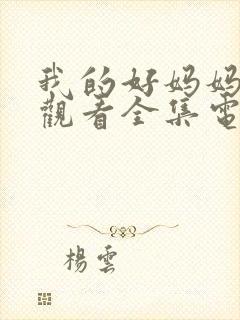 我的好妈妈
觀看全集電
楊雲